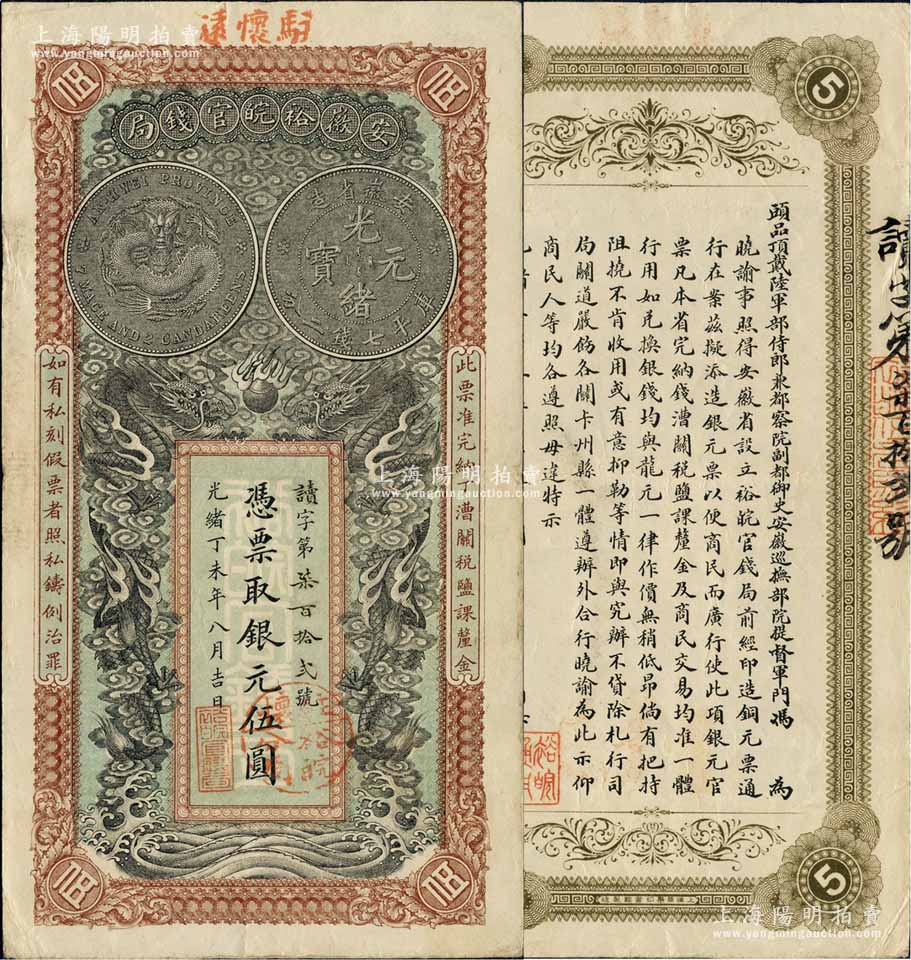 駐懷遠
上海陽明拍賣
www.yangmingauction.com
伍
伍
安徽裕皖官錢局
AN-HWEI PROVINCE
7 MACE AND 2 CANDAREENS
安徽省造
光緒元寶
庫平七錢
此票准完納丁漕關稅鹽課釐金
如有私刻假票者照私鑄例治罪
讀字第柒百拾弍號
憑票取銀元伍圓
光緒丁未年八月吉日
上海陽明拍賣
www.yangmingauction.com
伍
伍
上海陽明拍賣
www.yangmingauction.com
5
頭品頂戴陸軍部侍郎兼都察院副都御史安徽巡撫部院提督軍門馮 為
曉諭事照得安徽省設立裕皖官錢局前經印造銅元票通
行在案茲擬添造銀元票以便商民而廣行使此項銀元官
票凡本省完納錢漕關稅鹽課釐金及商民交易均准一體
行用如兌換銀錢均與龍元一律作價無稍低昂倘有把持
阻撓不肯收用或有意抑勒等情即與究辦不貸除札行司
局關道嚴飭各關卡州縣一體遵辦外合行曉諭為此示仰
商民人等均各遵照毋違特示
裕皖
5
上海陽明拍賣
www.yangmingauction.com